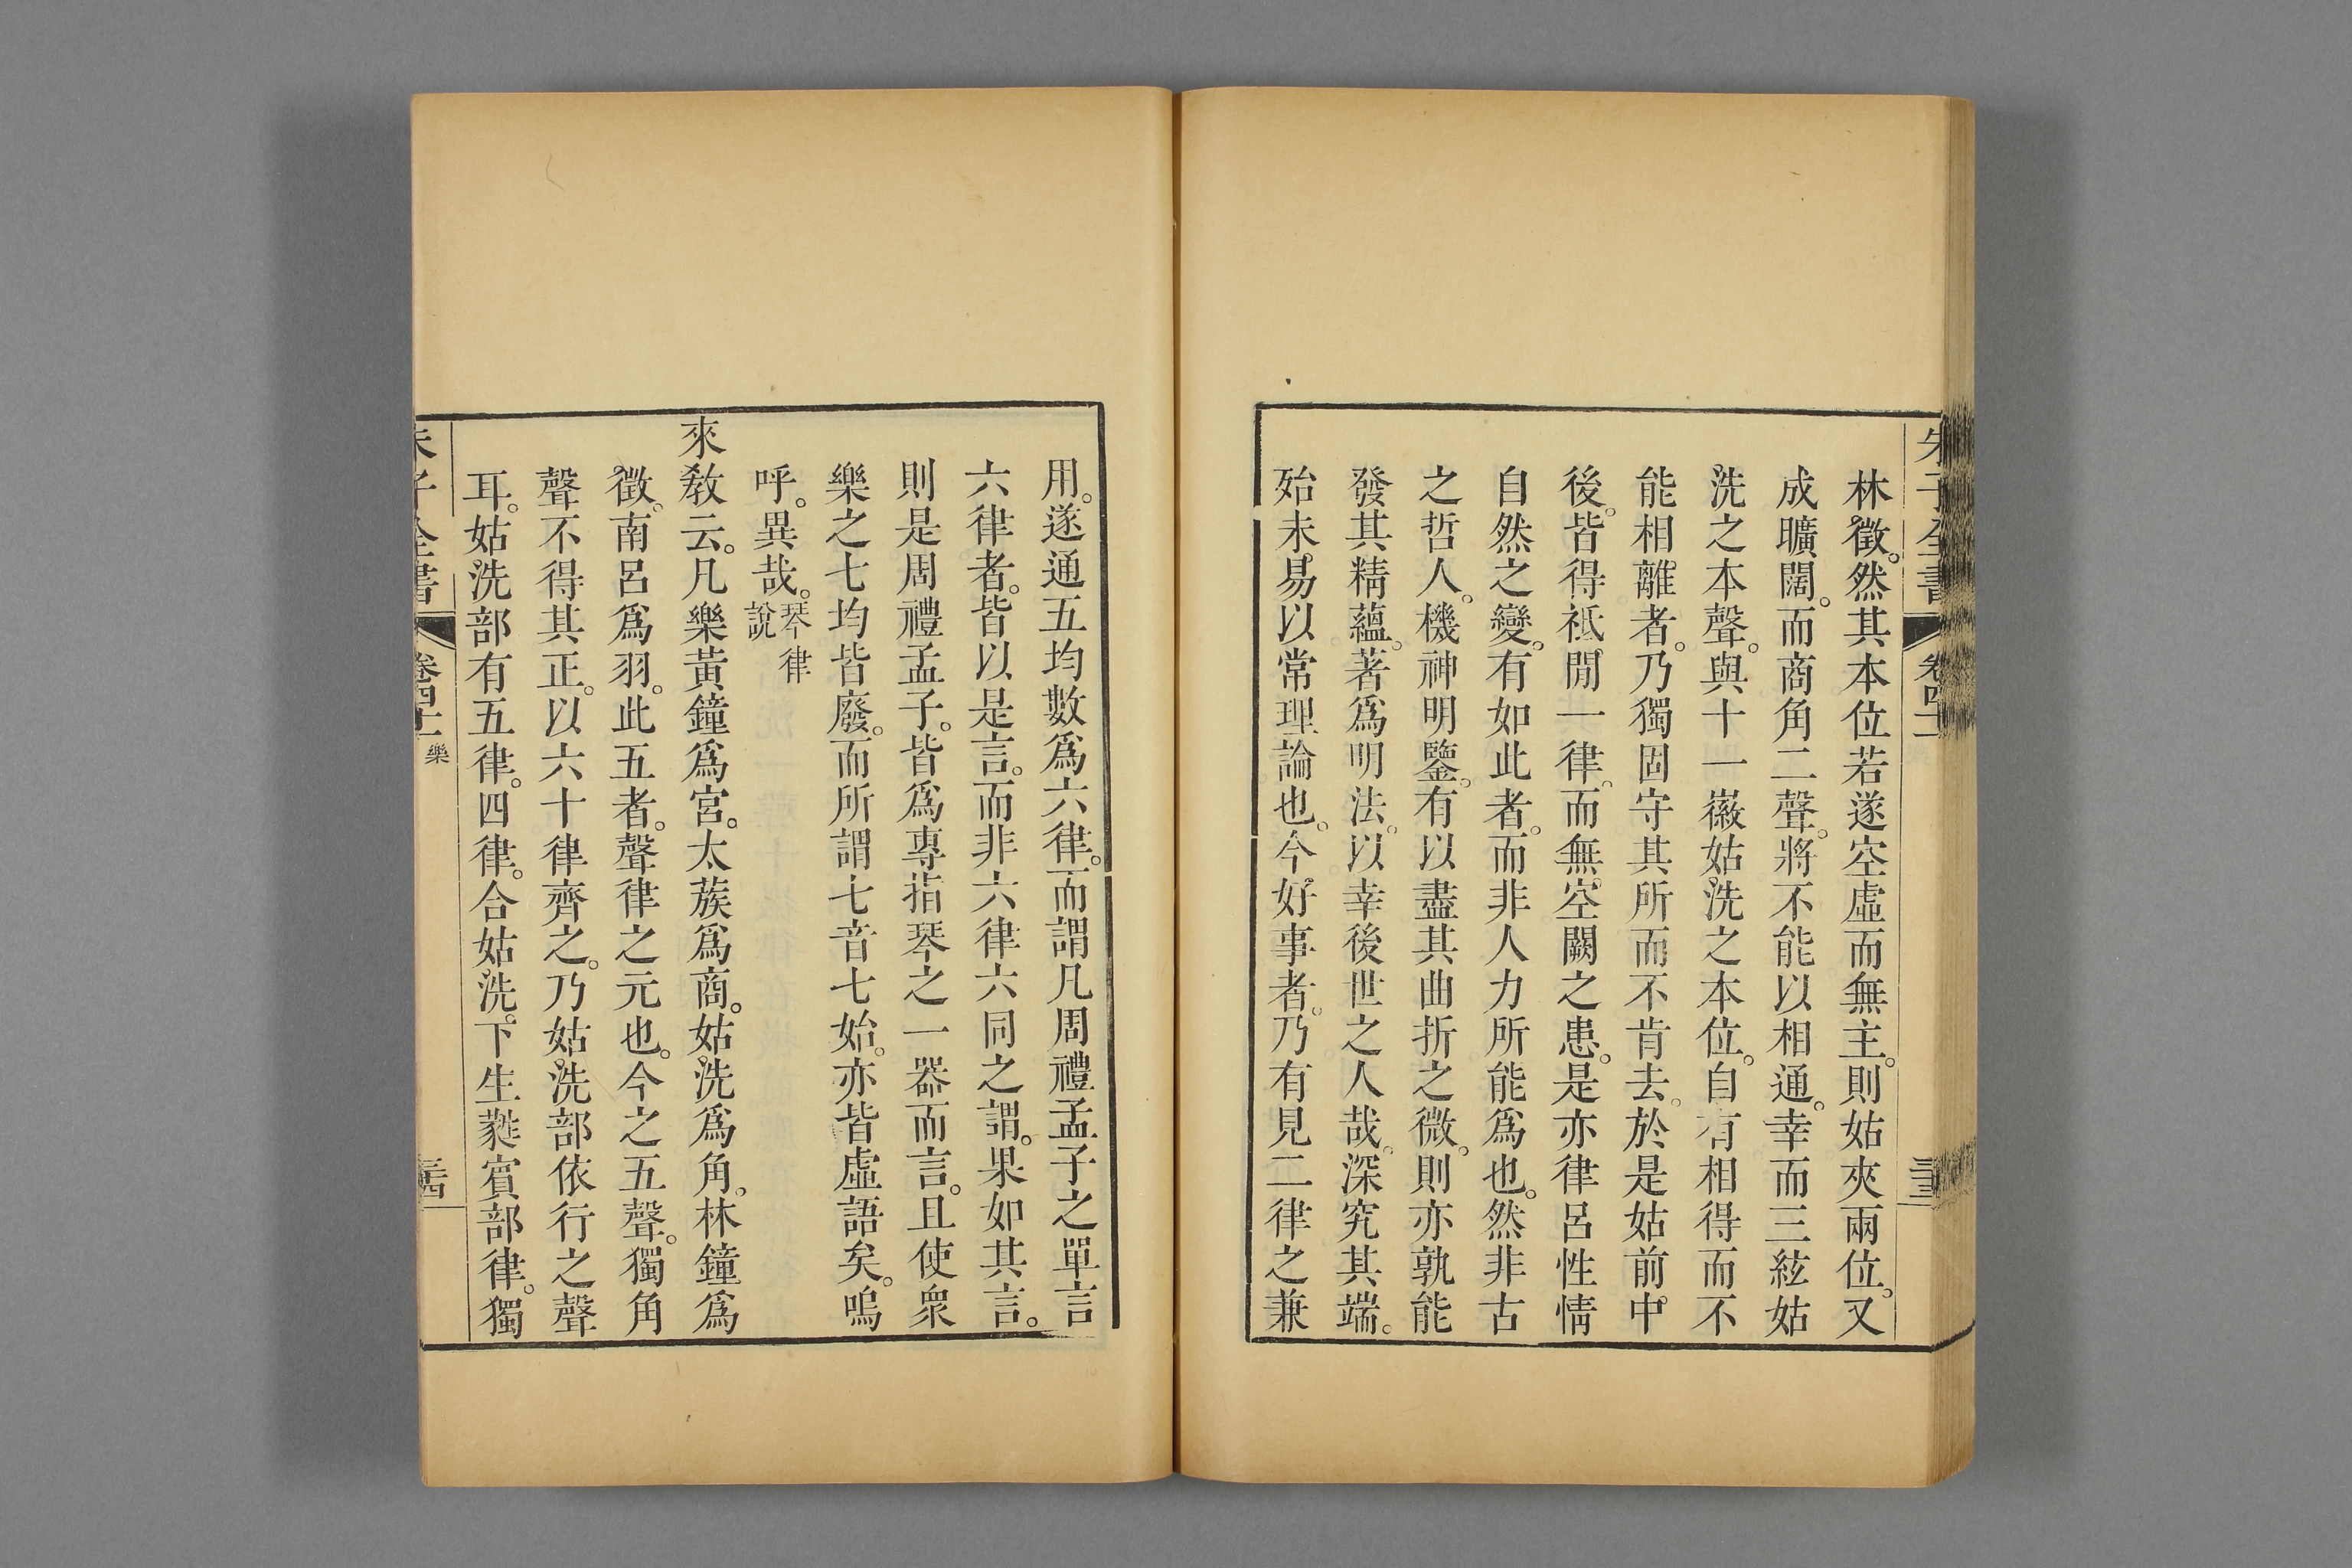 朱子全書 卷四十一
林徵。然其本位若遂空虛而無主。則姑夾兩位。又
成曠闊。而商角二聲。將不能以相通。幸而三絃姑
洗之本聲。與十一徽姑洗之本位。自有相得而不
能相離者。乃獨固守其所而不肯去。於是姑前中
後。皆得祗閒一律。而無空闕之患。是亦律呂性情
自然之變。有如此者。而非人力所能爲也。然非古
之哲人。機神明鑒。有以盡其曲折之微。則亦孰能
發其精蘊。著爲明法。以幸後世之人哉。深究其端。
殆未易以常理論也。今好事者。乃有見二律之兼
用。遂通五均數爲六律。而謂凡周禮孟子之單言
六律者。皆以是言。而非六律六同之謂。果如其言。
則是周禮孟子。皆爲專指琴之一器而言。且使衆
樂之七均皆廢。而所謂七音七始。亦皆虛語矣。嗚
呼。異哉。琴律說
來敎云。凡樂黃鐘爲宮。太蔟爲商。姑洗爲角。林鐘爲
徵。南呂爲羽。此五者。聲律之元也。今之五聲。獨角
聲不得其正。以六十律齊之。乃姑洗部依行之聲
耳。姑洗部有五律。四律。合姑洗。下生蕤賓部律。獨
朱子全書 卷四十一 樂 三四